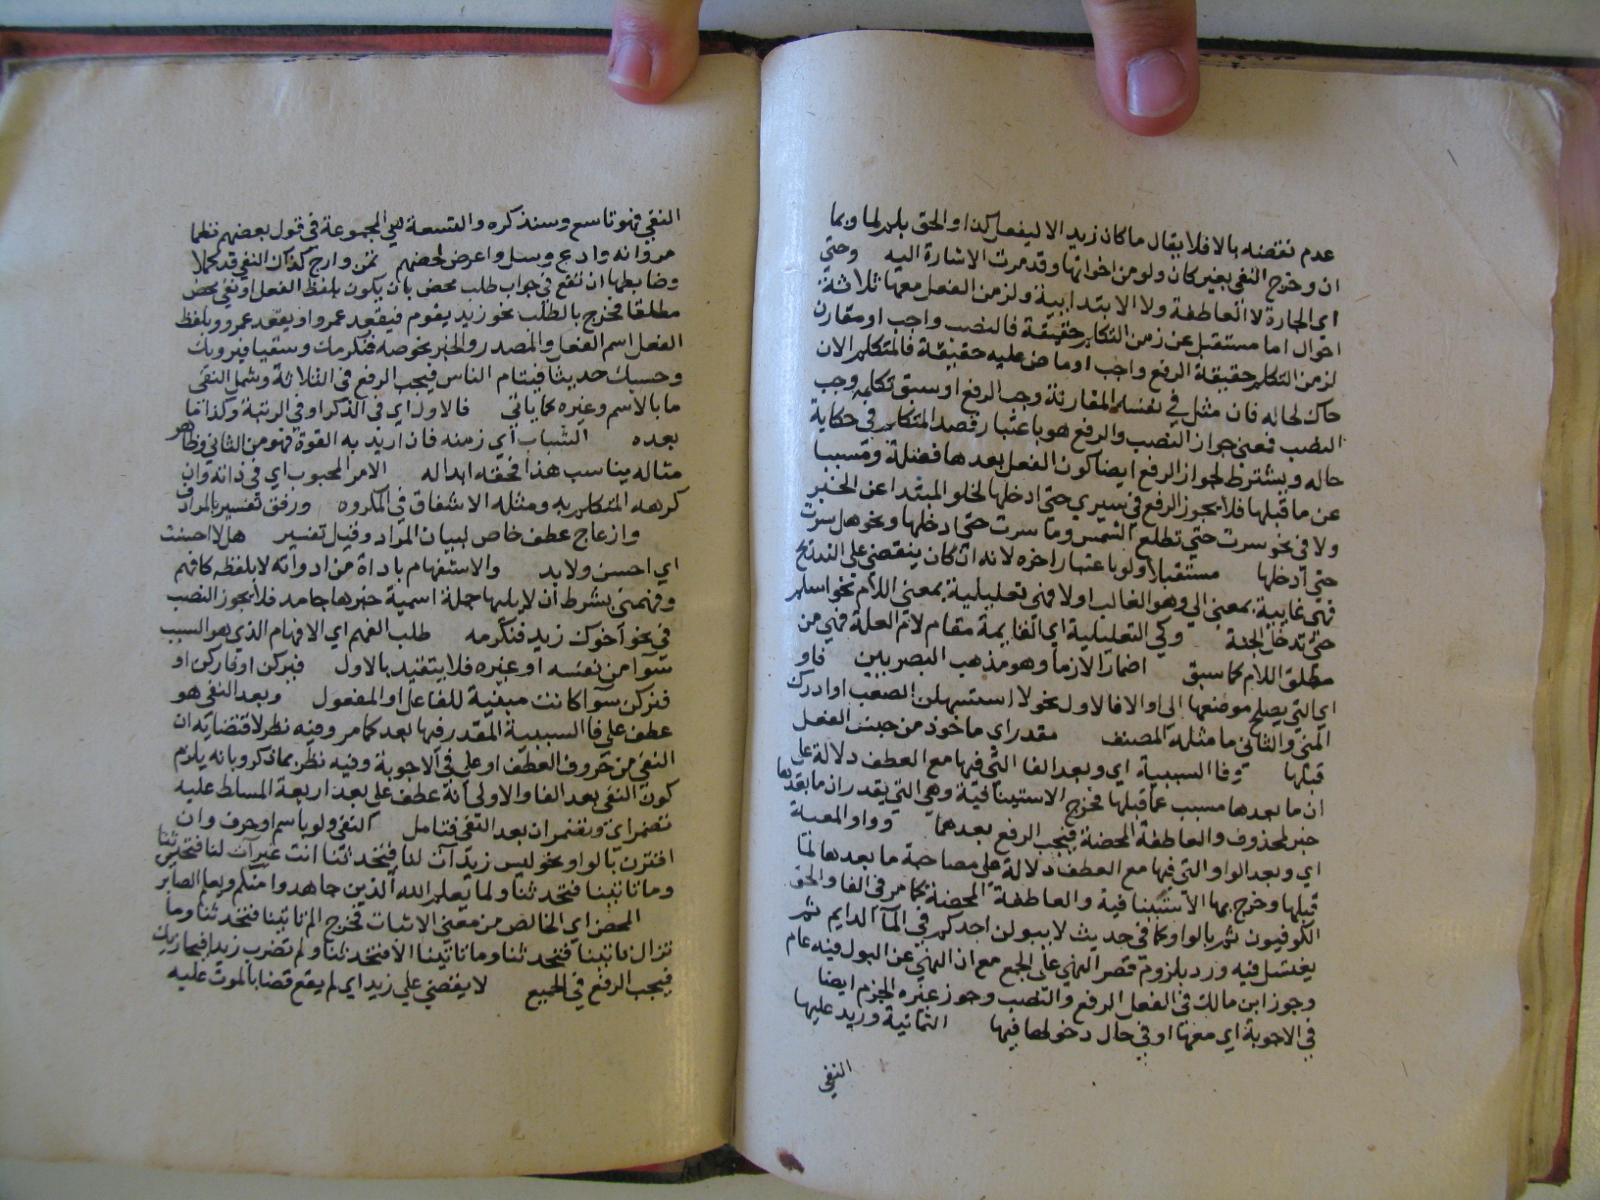 عدم نقضه بالا فلا يقال ما كان زيد الا ليفعل كذا والحق بلم لما وبما
ان وخرج النفي بغير كان ولو من اخواتها وقد مرت الاشارة اليه وحتى
اي الجارة لا العاطفة ولا الابتدايية ولزمن الفعل معها ثلاثة
احوال اما مستقبل عن زمن التكلم حقيقة فالنصب واجب او مقارن
لزمن التكلم حقيقة الرفع واجب او ماض عليه حقيقة فالمتكلم الان
حاك لحاله فان مثل في نفسه المقارنة وجب الرفع او سبق تكلمه وجب
النصب فمعنى جواز النصب والرفع هو باعتبار قصد المتكلم في حكاية
حاله ويشترط لجواز الرفع ايضا كون الفعل بعدها فضلة ومسببا
عن ما قبلها فلا يجوز الرفع في سيري حتى ادخلها لخلو المبتدا عن الخبر
ولا في نحو سرت حتى تطلع الشمس وما سرت حتى ادخلها ونحو هل سرت
حتى ادخلها مستقبلا ولو باعتبار اخره لانه ان كان ينقضي على التدريج
فهي غايية بمعنى الى وهو الغالب اولا فهي تعليلية بمعنى اللام نحو اسلم
حتى تدخل الجنة وكي التعليلية اي القايمة مقام لام العلة فهي من
مطلق اللام كما سبق اضمارا لازما وهو مذهب البصريين فاو
اي التي يصلح موضعها الى او الا فالاول نحو لاستسهلن الصعب او ادرك
المنى والثاني ما مثله المصنف مقدر اي ماخوذ من جنس الفعل
قبلها وفا السببية اي وبعد الفا التي فيها مع العطف دلالة على
ان ما بعدها مسبب عما قبلها فخرج الاستينافية وهي التي يقدر ان ما بعدها
خبر لمحذوف والعاطفة المحضة فيجب الرفع بعدهما وواو المعية
اي وبعد الواو التي فيها مع العطف دلالة على مصاحبة ما بعدها لما
قبلها وخرج بها الاستينافية والعاطفة المحضة كما مر في الفا والحق
الكوفيون ثم بالواو كما في حديث لا يبولن احدكم في الماء الدايم ثم
يغتسل فيه ورد بلزوم قصر النهي على الجمع مع ان النهي عن البول فيه عام
وجوز ابن مالك في الفعل الرفع والنصب وجوز غيره الجزم ايضا
في الاجوبة اي معها او في حال دخولها فيها الثمانية وزيد عليها
النفي
النفي فهو تاسع وسنذكره والتسعة هي المجموعة في قول بعضهم نظما
مر وانه وادع وسل واعرض لحضهم تمن وارج كذاك النفي قد كملا
وضابطها ان تقع في جواب طلب محض بان يكون بلفظ الفعل او نفي محض
مطلقا فخرج بالطلب نحو زيد يقوم فيقعد عمرو او يقعد عمرو وبلفظ
الفعل اسم الفعل والمصدر والخبر نحو صه فنكرمك وسقيا فيرويك
وحسبك حديثا فينام الناس فيجب الرفع في الثلاثة ويشمل النفي
ما بالاسم وغيره كما ياتي فالاول اي في الذكر او في الرتبة وكذا ما
بعده الشباب اي زمنه فان اريد به القوة فهو من الثاني وظاهر
مثاله يناسب هذا فحقه ابداله الامر المحبوب اي في ذاته وان
كرهه المتكلم به ومثله الاشفاق في المكروه ورفق تفسير بالمراد
وازعاج عطف خاص لبيان المراد وقيل تفسير هلا احسنت
اي احسن ولا بد والاستفهام باداة من ادواته لا بلفظه كافهم
وفهمني بشرط ان لا يليها جملة اسمية خبرها جامد فلا يجوز النصب
في نحو اخوك زيد فنكرمه طلب الفهم اي الافهام الذي هو السبب
سوآ من نفسه او غيره فلا يتقيد بالاول
فنزكن سوآ كانت مبنية للفاعل او المفعول وبعد النفي هو
عطف على فا السببية المقدر فيها بعد كما مر وفيه نظر لاقتضايه ان
النفي من حروف العطف او على في الاجوبة وفيه نظر بما ذكر وبانه يلزم
كون النفي بعد الفا والاولى انه عطف على بعد اربعة المسلط عليه
تضمر اي وتضمر ان بعد النفي فتامل النفي ولو باسم او حرف وان
اقترن بالواو نحو ليس زيد آت لنا فيتحدثنا انت غير آت لنا فتحدثنا
وما تاتينا فتحدثنا ولما يعلم الله الذين جاهدوا منكم ويعلم الصابر
المحض اي الخالص من معنى الاثبات فخرج الم تاتينا فتحدثنا وما
تزال تاتينا فتحدثنا وما تاتينا الا فتحدثنا ولم تضرب زيدا فيجازيك
فيجب الرفع في الجميع لا يقضي على زيد اي لم يقع قضا بالموت عليه